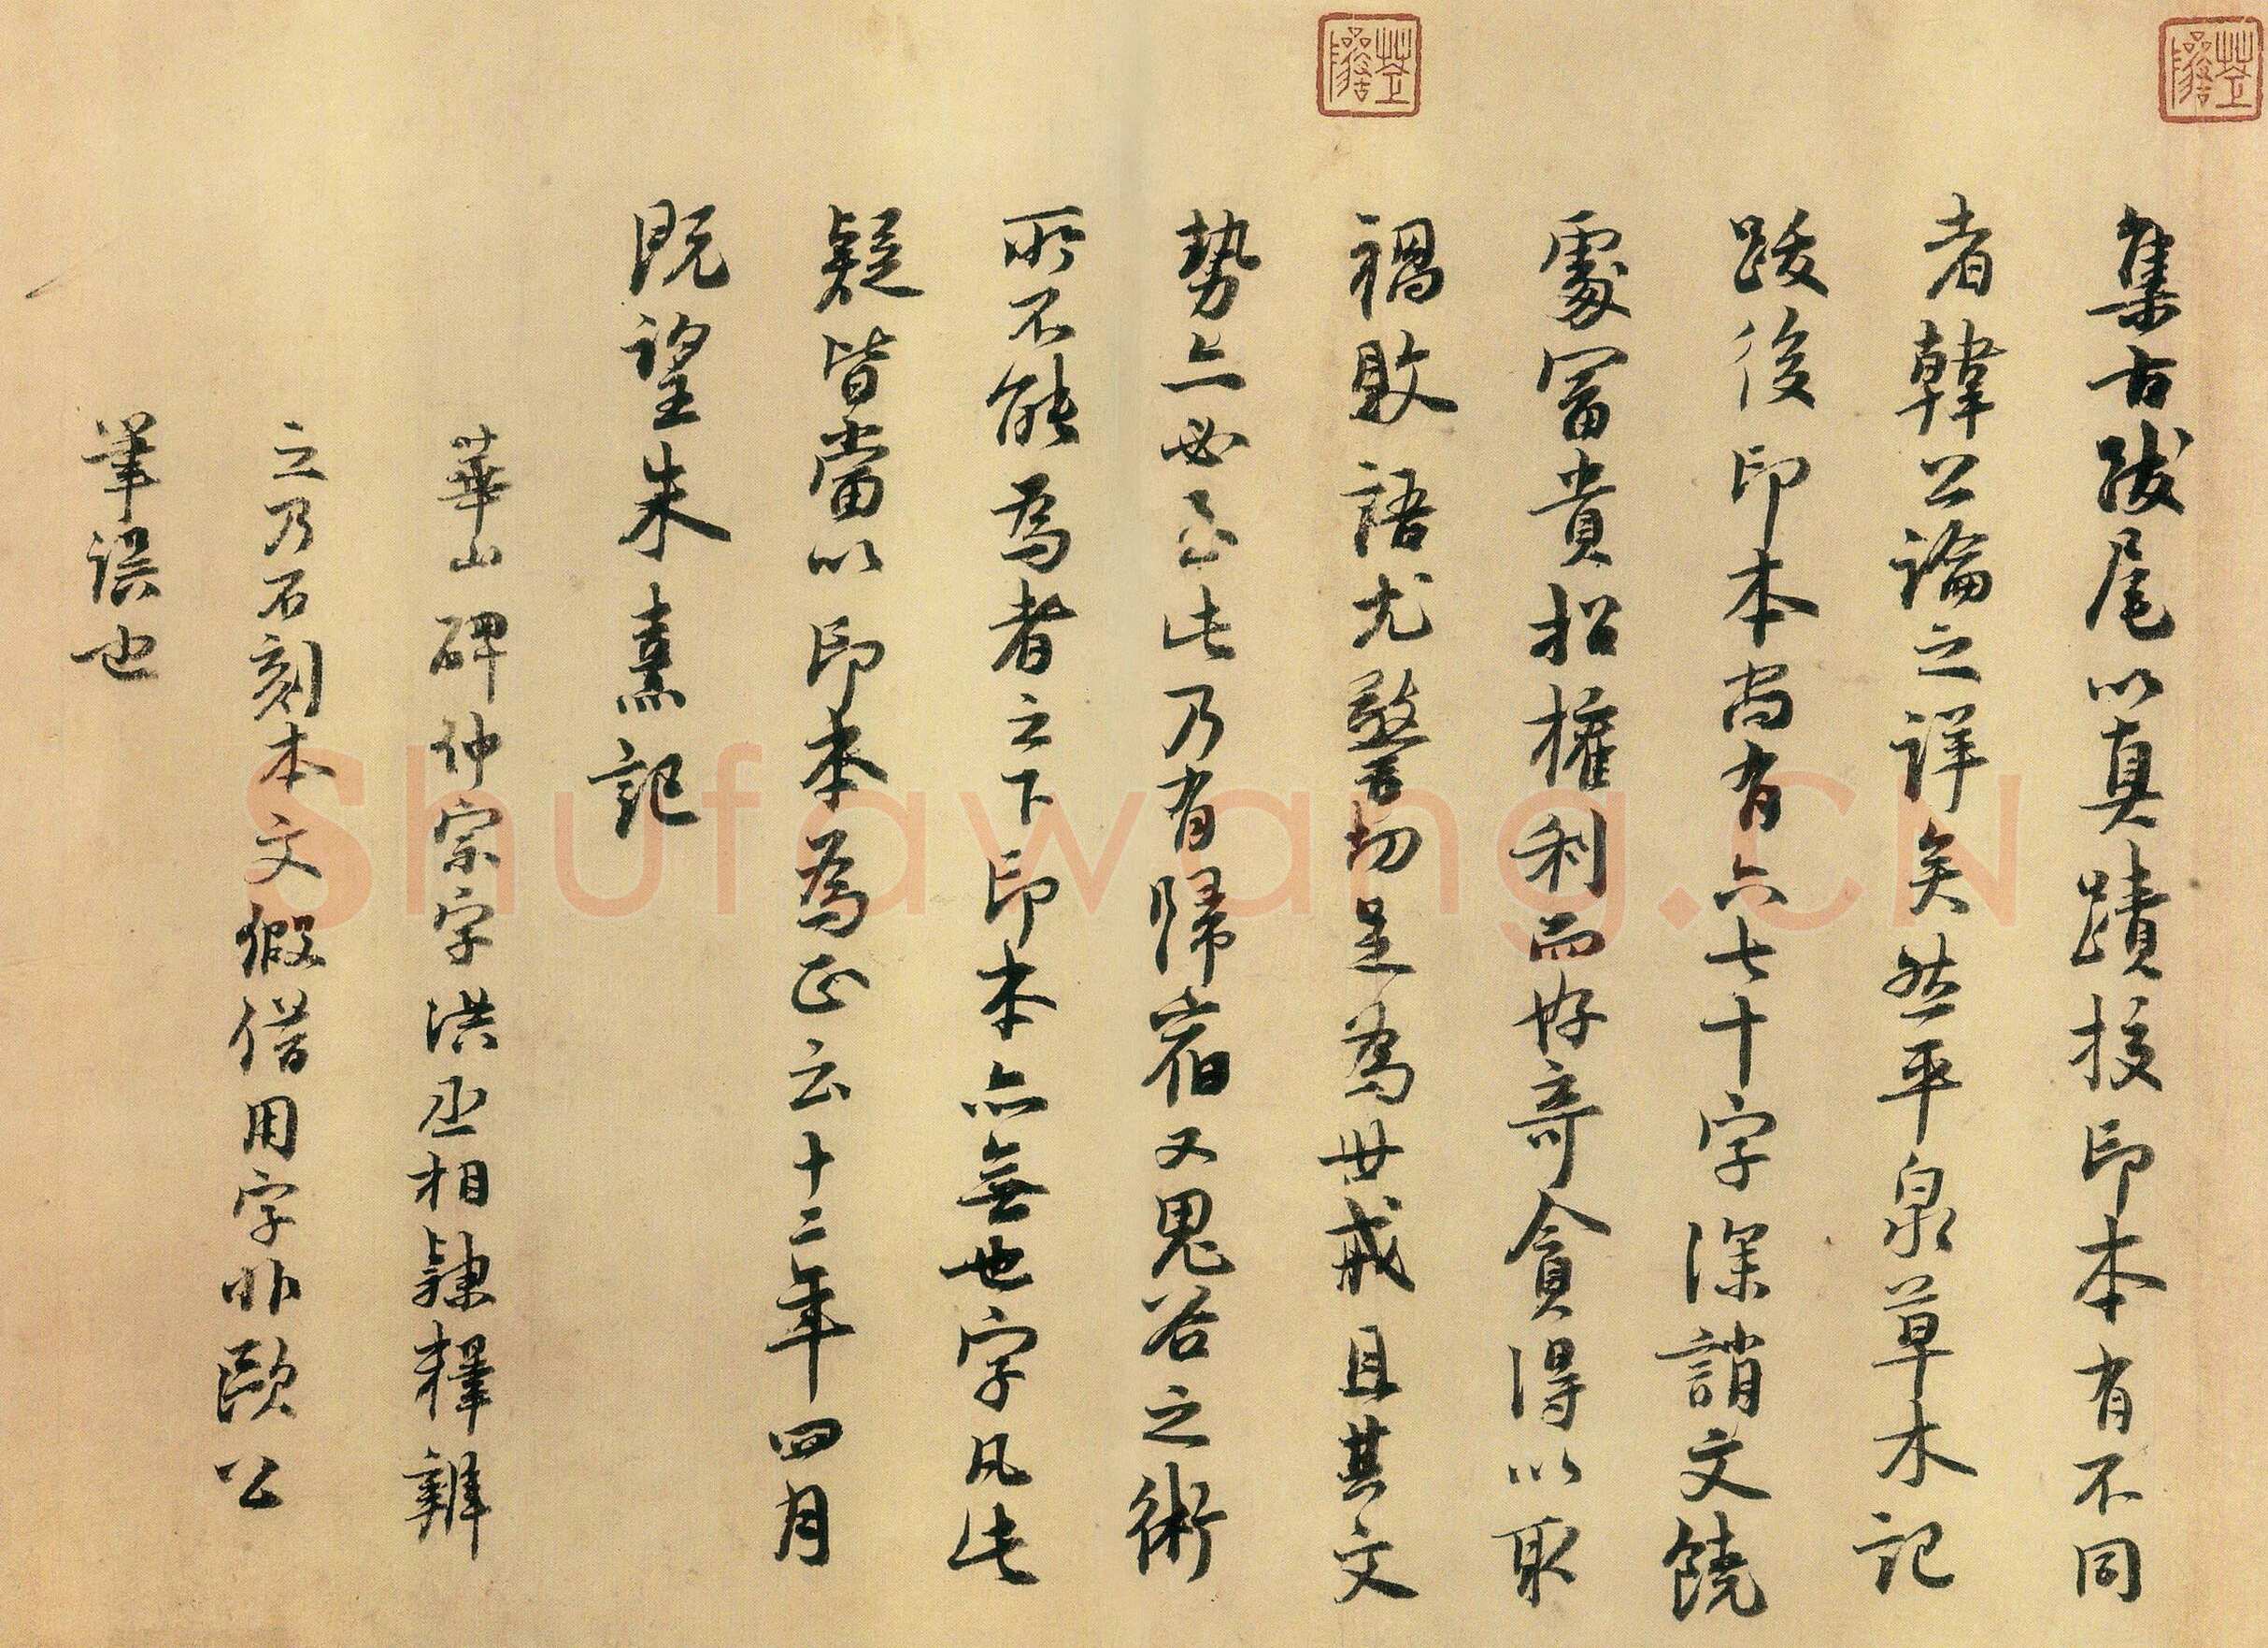 集古跋尾以真蹟挍印本有不同
者韓公論之詳矣然平泉草木記
跋後印本尚有六七十字深誚文饒
處富貴招權利而好奇貪得以取
禍敗語尤警切足為世戒且其文
勢亦必至此乃有歸宿又鬼谷之術
所不能為者之下印本亦無也字凡此
疑皆當以印本為正云十二年四月
既望朱熹記
華山碑仲宗字洪丞相隸釋辨
之乃石刻本文假借用字非歐公
筆誤也
Shufawang.CN